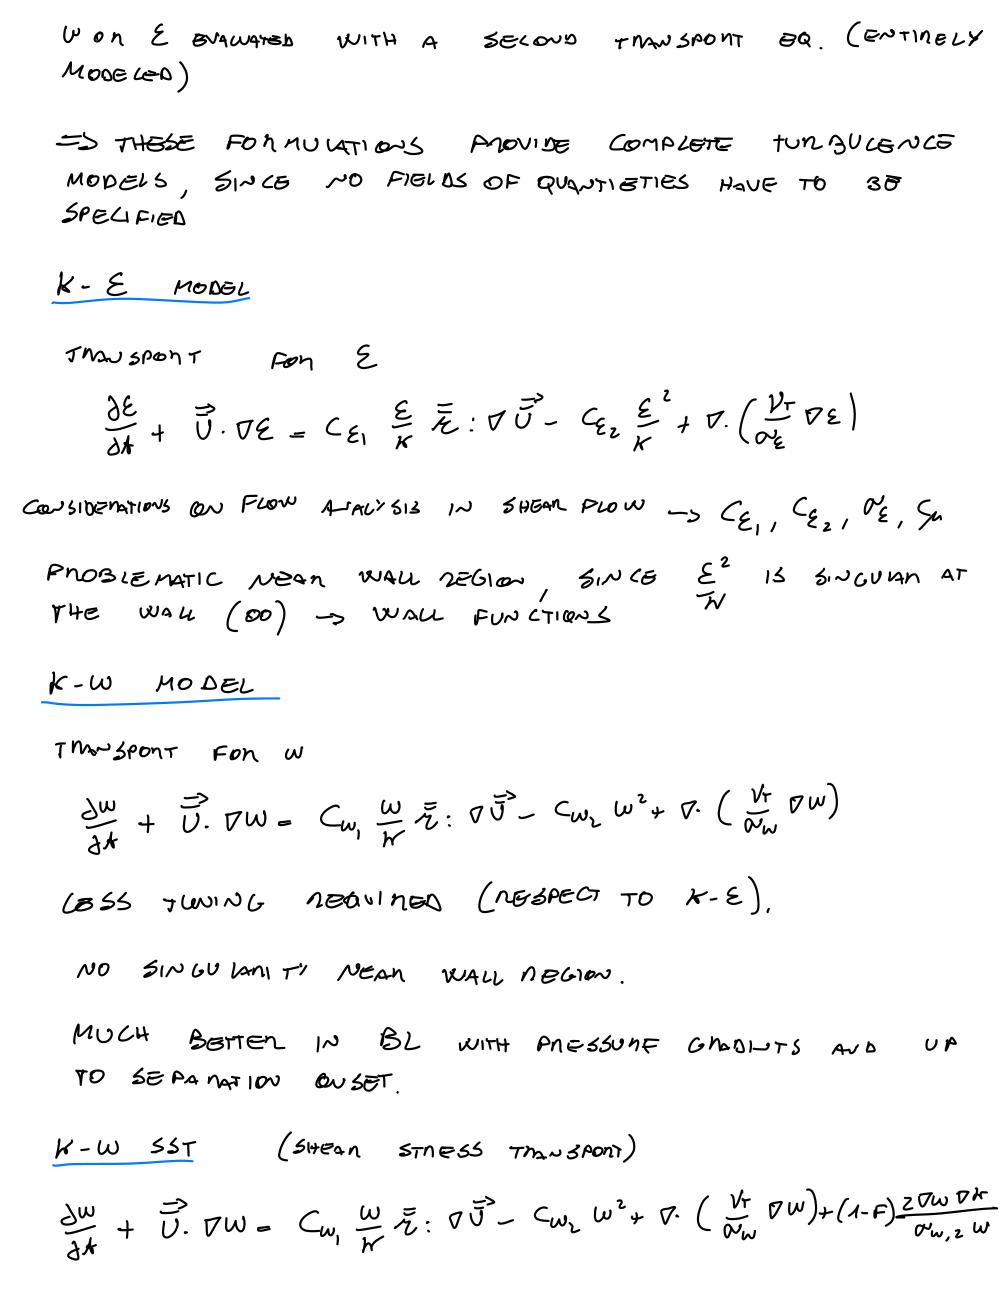 ω OR ε EVALUATED WITH A SECOND TRANSPORT EQ. (ENTIRELY
MODELED)
=> THESE FORMULATIONS PROVIDE COMPLETE TURBULENCE
MODELS, SINCE NO FIELDS OF QUANTIETIES HAVE TO BE
SPECIFIED
K-ε MODEL
TRANSPORT FOR ε
∂ε/∂t + \vec{\bar{U}} · ∇ε = C_{ε1} ε/K \bar{\bar{τ}} : ∇\vec{\bar{U}} - C_{ε2} ε²/K + ∇·(ν_T/σ_ε ∇ε)
CONSIDERATIONS ON FLOW ANALYSIS IN SHEAR FLOW → C_{ε1}, C_{ε2}, σ_ε, C_μ
PROBLEMATIC NEAR WALL REGION, SINCE ε²/K IS SINGULAR AT
THE WALL (∞) → WALL FUNCTIONS
K-ω MODEL
TRANSPORT FOR ω
∂ω/∂t + \vec{\bar{U}} · ∇ω = C_{ω1} ω/K \bar{\bar{τ}} : ∇\vec{\bar{U}} - C_{ω2} ω² + ∇·(ν_T/σ_ω ∇ω)
LESS TUNING REQUIRED (RESPECT TO K-ε).
NO SINGULARITY NEAR WALL REGION.
MUCH BETTER IN BL WITH PRESSURE GRADINTS AND UP
TO SEPARATION ONSET.
K-ω SST (SHEAR STRESS TRANSPORT)
∂ω/∂t + \vec{\bar{U}} · ∇ω = C_{ω1} ω/K \bar{\bar{τ}} : ∇\vec{\bar{U}} - C_{ω2} ω² + ∇·(ν_T/σ_ω ∇ω) + (1-F) 2∇ω∇K/(σ_{ω,2} ω)